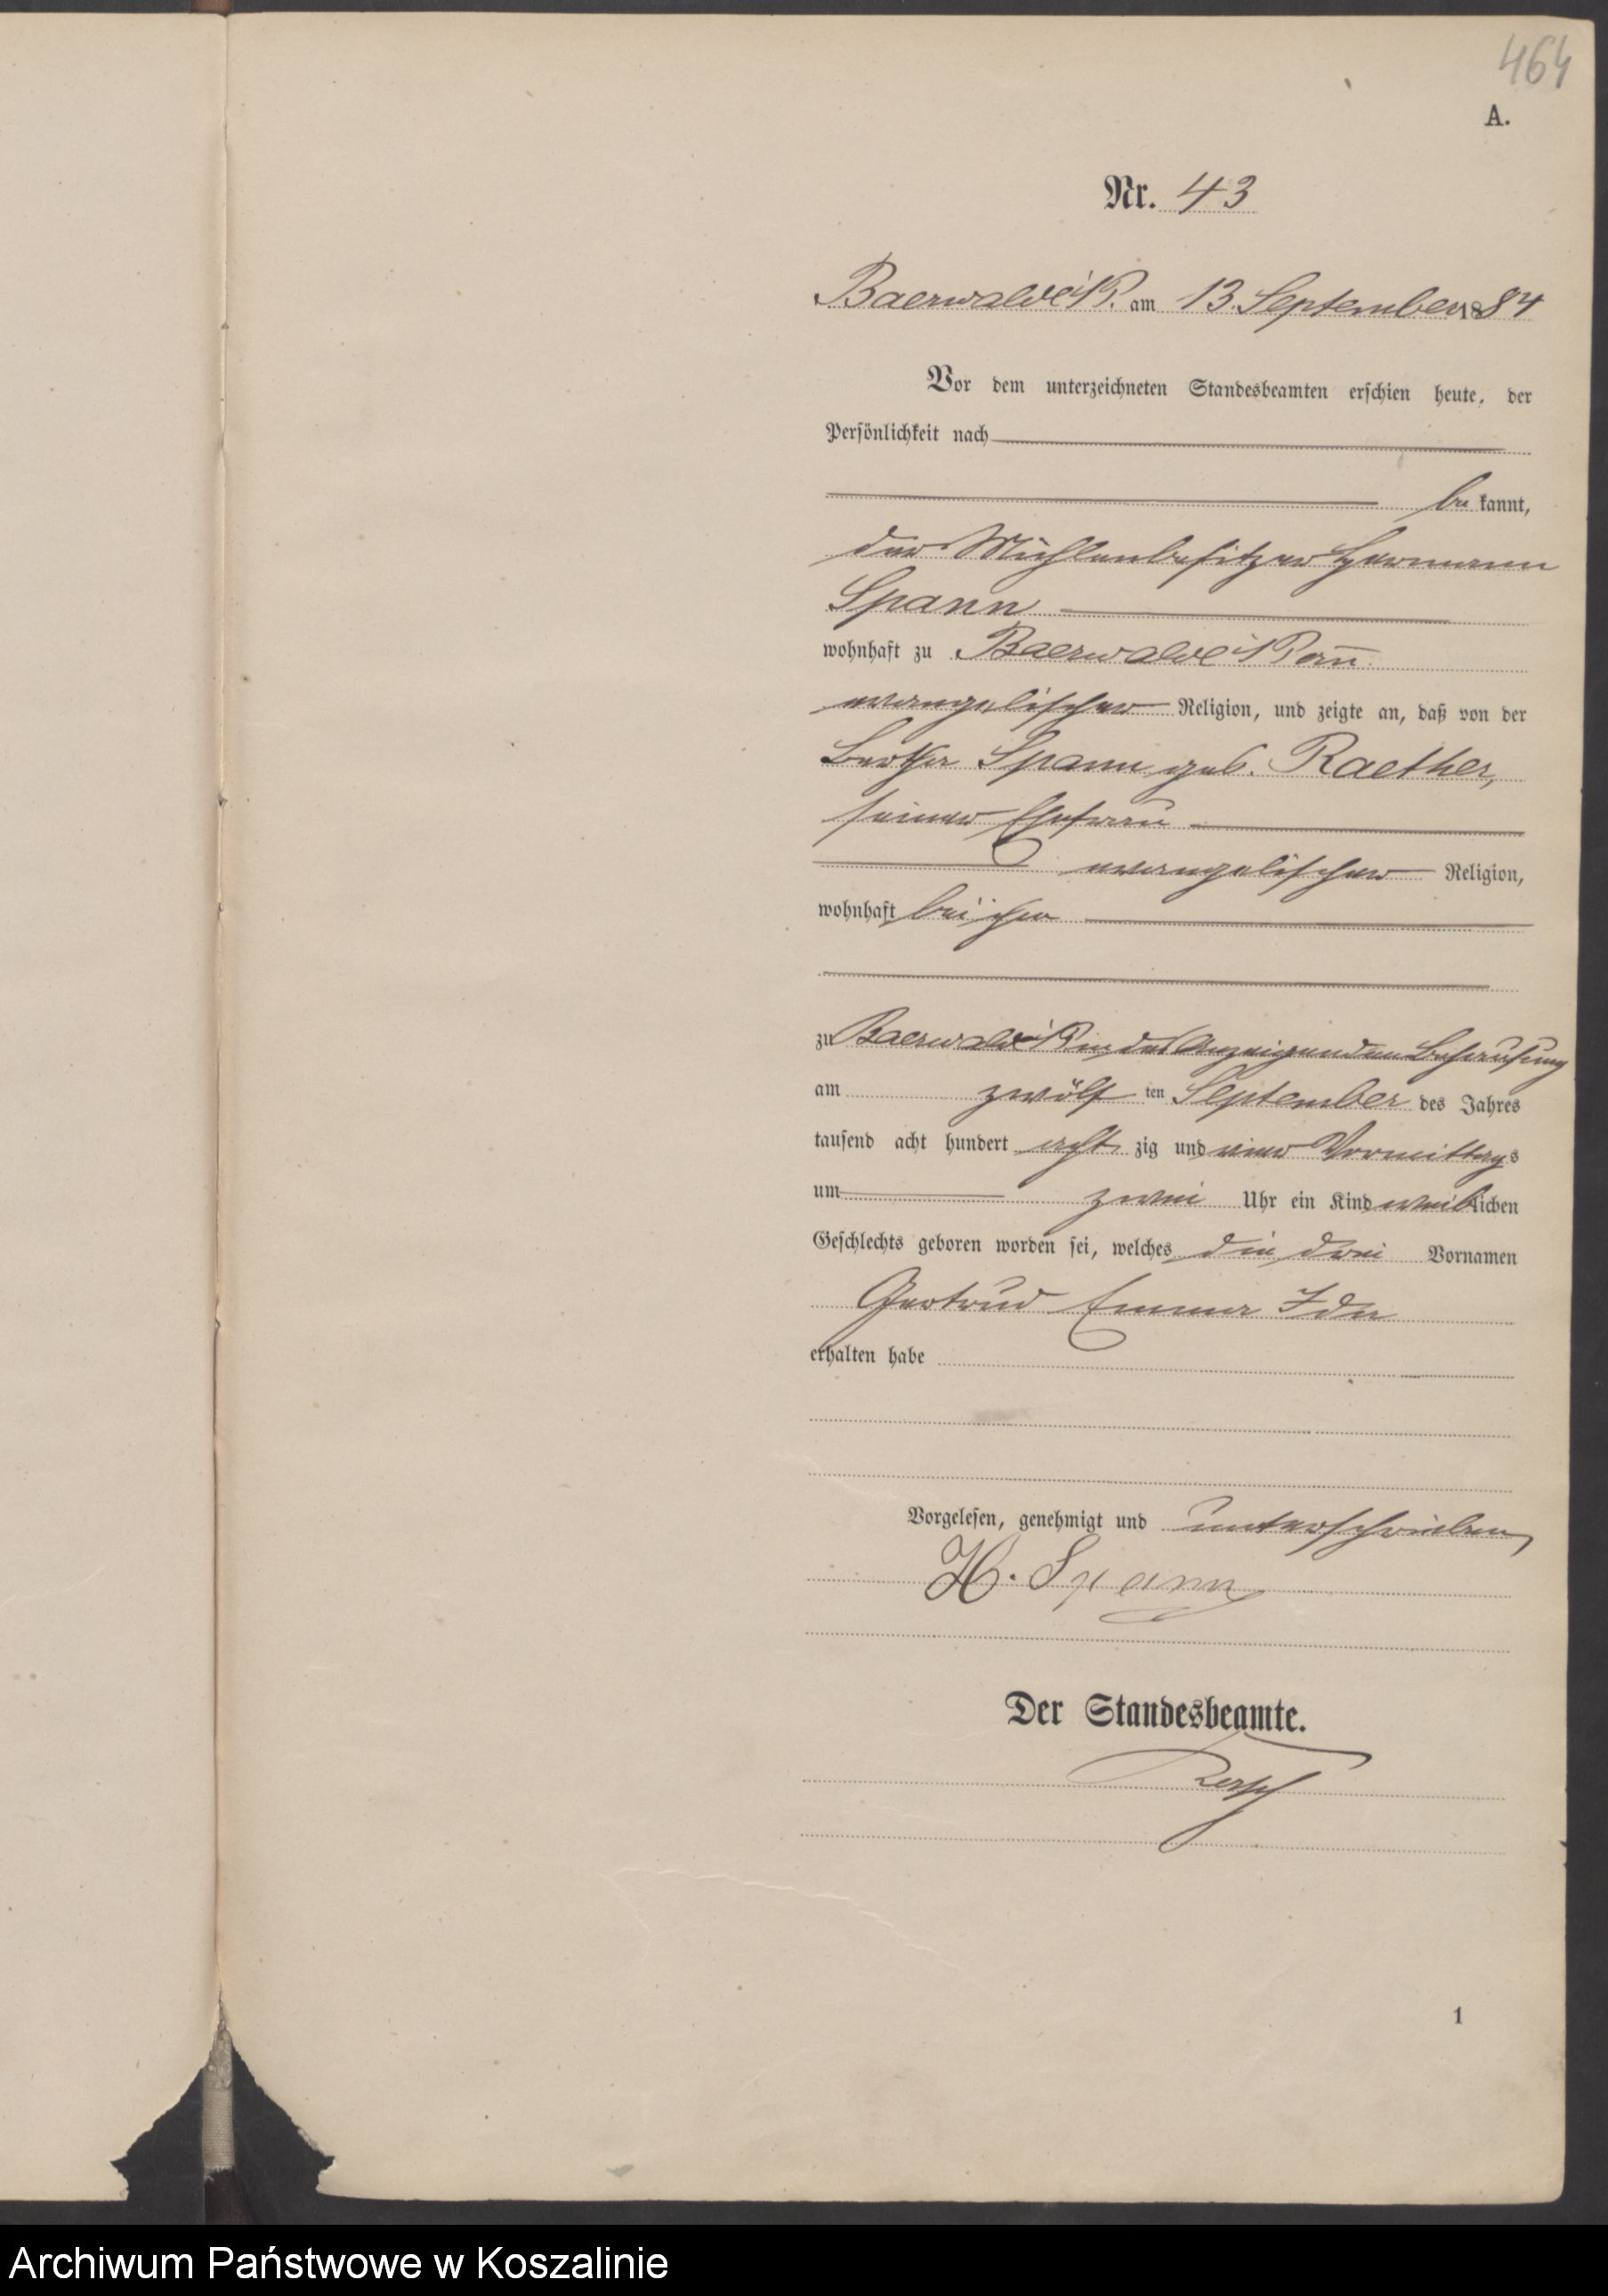 464
A.
Nr. 43
Baerwalde i/P. am 13. September 1884
Vor dem unterzeichneten Standesbeamten erschien heute, der
Persönlichkeit nach
be kannt,
der Mühlenbesitzer Hermann
Spann
wohnhaft zu Baerwalde i/Pom̄
evangelischer Religion, und zeigte an, daß von der
Bertha Spann geb. Raether,
seiner Ehefrau
evangelischer Religion,
wohnhaft bei ihm
zu Baerwalde i/P in des Anzeigenden Behausung
am zwölf ten September des Jahres
tausend acht hundert acht zig und vier Vormittags
um zwei Uhr ein Kind weiblichen
Geschlechts geboren worden sei, welches die drei Vornamen
Gertrud Emma Ida
erhalten habe
Vorgelesen, genehmigt und unterschrieben,
H. Spann
Der Standesbeamte.
1
Archiwum Państwowe w Koszalinie